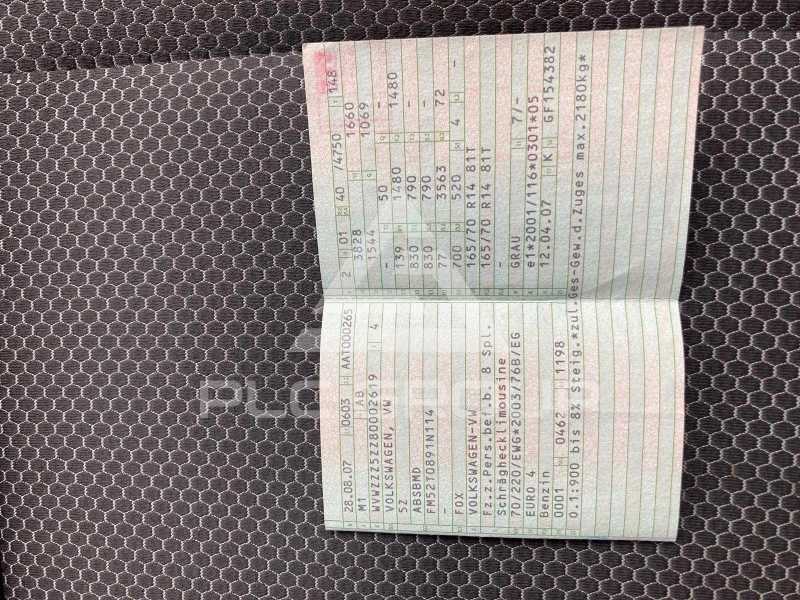 28.08.07 0603 AAT000265
M1 AB
WVWZZZ5ZZ80002619 4
VOLKSWAGEN, VW
5Z
ABSBMD
FM52T0891N114
-
FOX
VOLKSWAGEN-VW
Fz.z.Pers.bef.b. 8 Spl.
Schräghecklimousine
70/220/EWG*2003/76B/EG
EURO 4
Benzin
0001 0462 1198
0.1:900 bis 8% Steig.*zul.Ges-Gew.d.Zuges max.2180kg*
2 01 40 /4750 148
3828 1660
1544 1069
- 50 -
139 1480 1480
830 790 -
830 790 -
77 3563 72
700 520 4 -
165/70 R14 81T
165/70 R14 81T
-
GRAU 7/-
e1*2001/116*0301*05
12.04.07 K GF154382
PLC GROUP